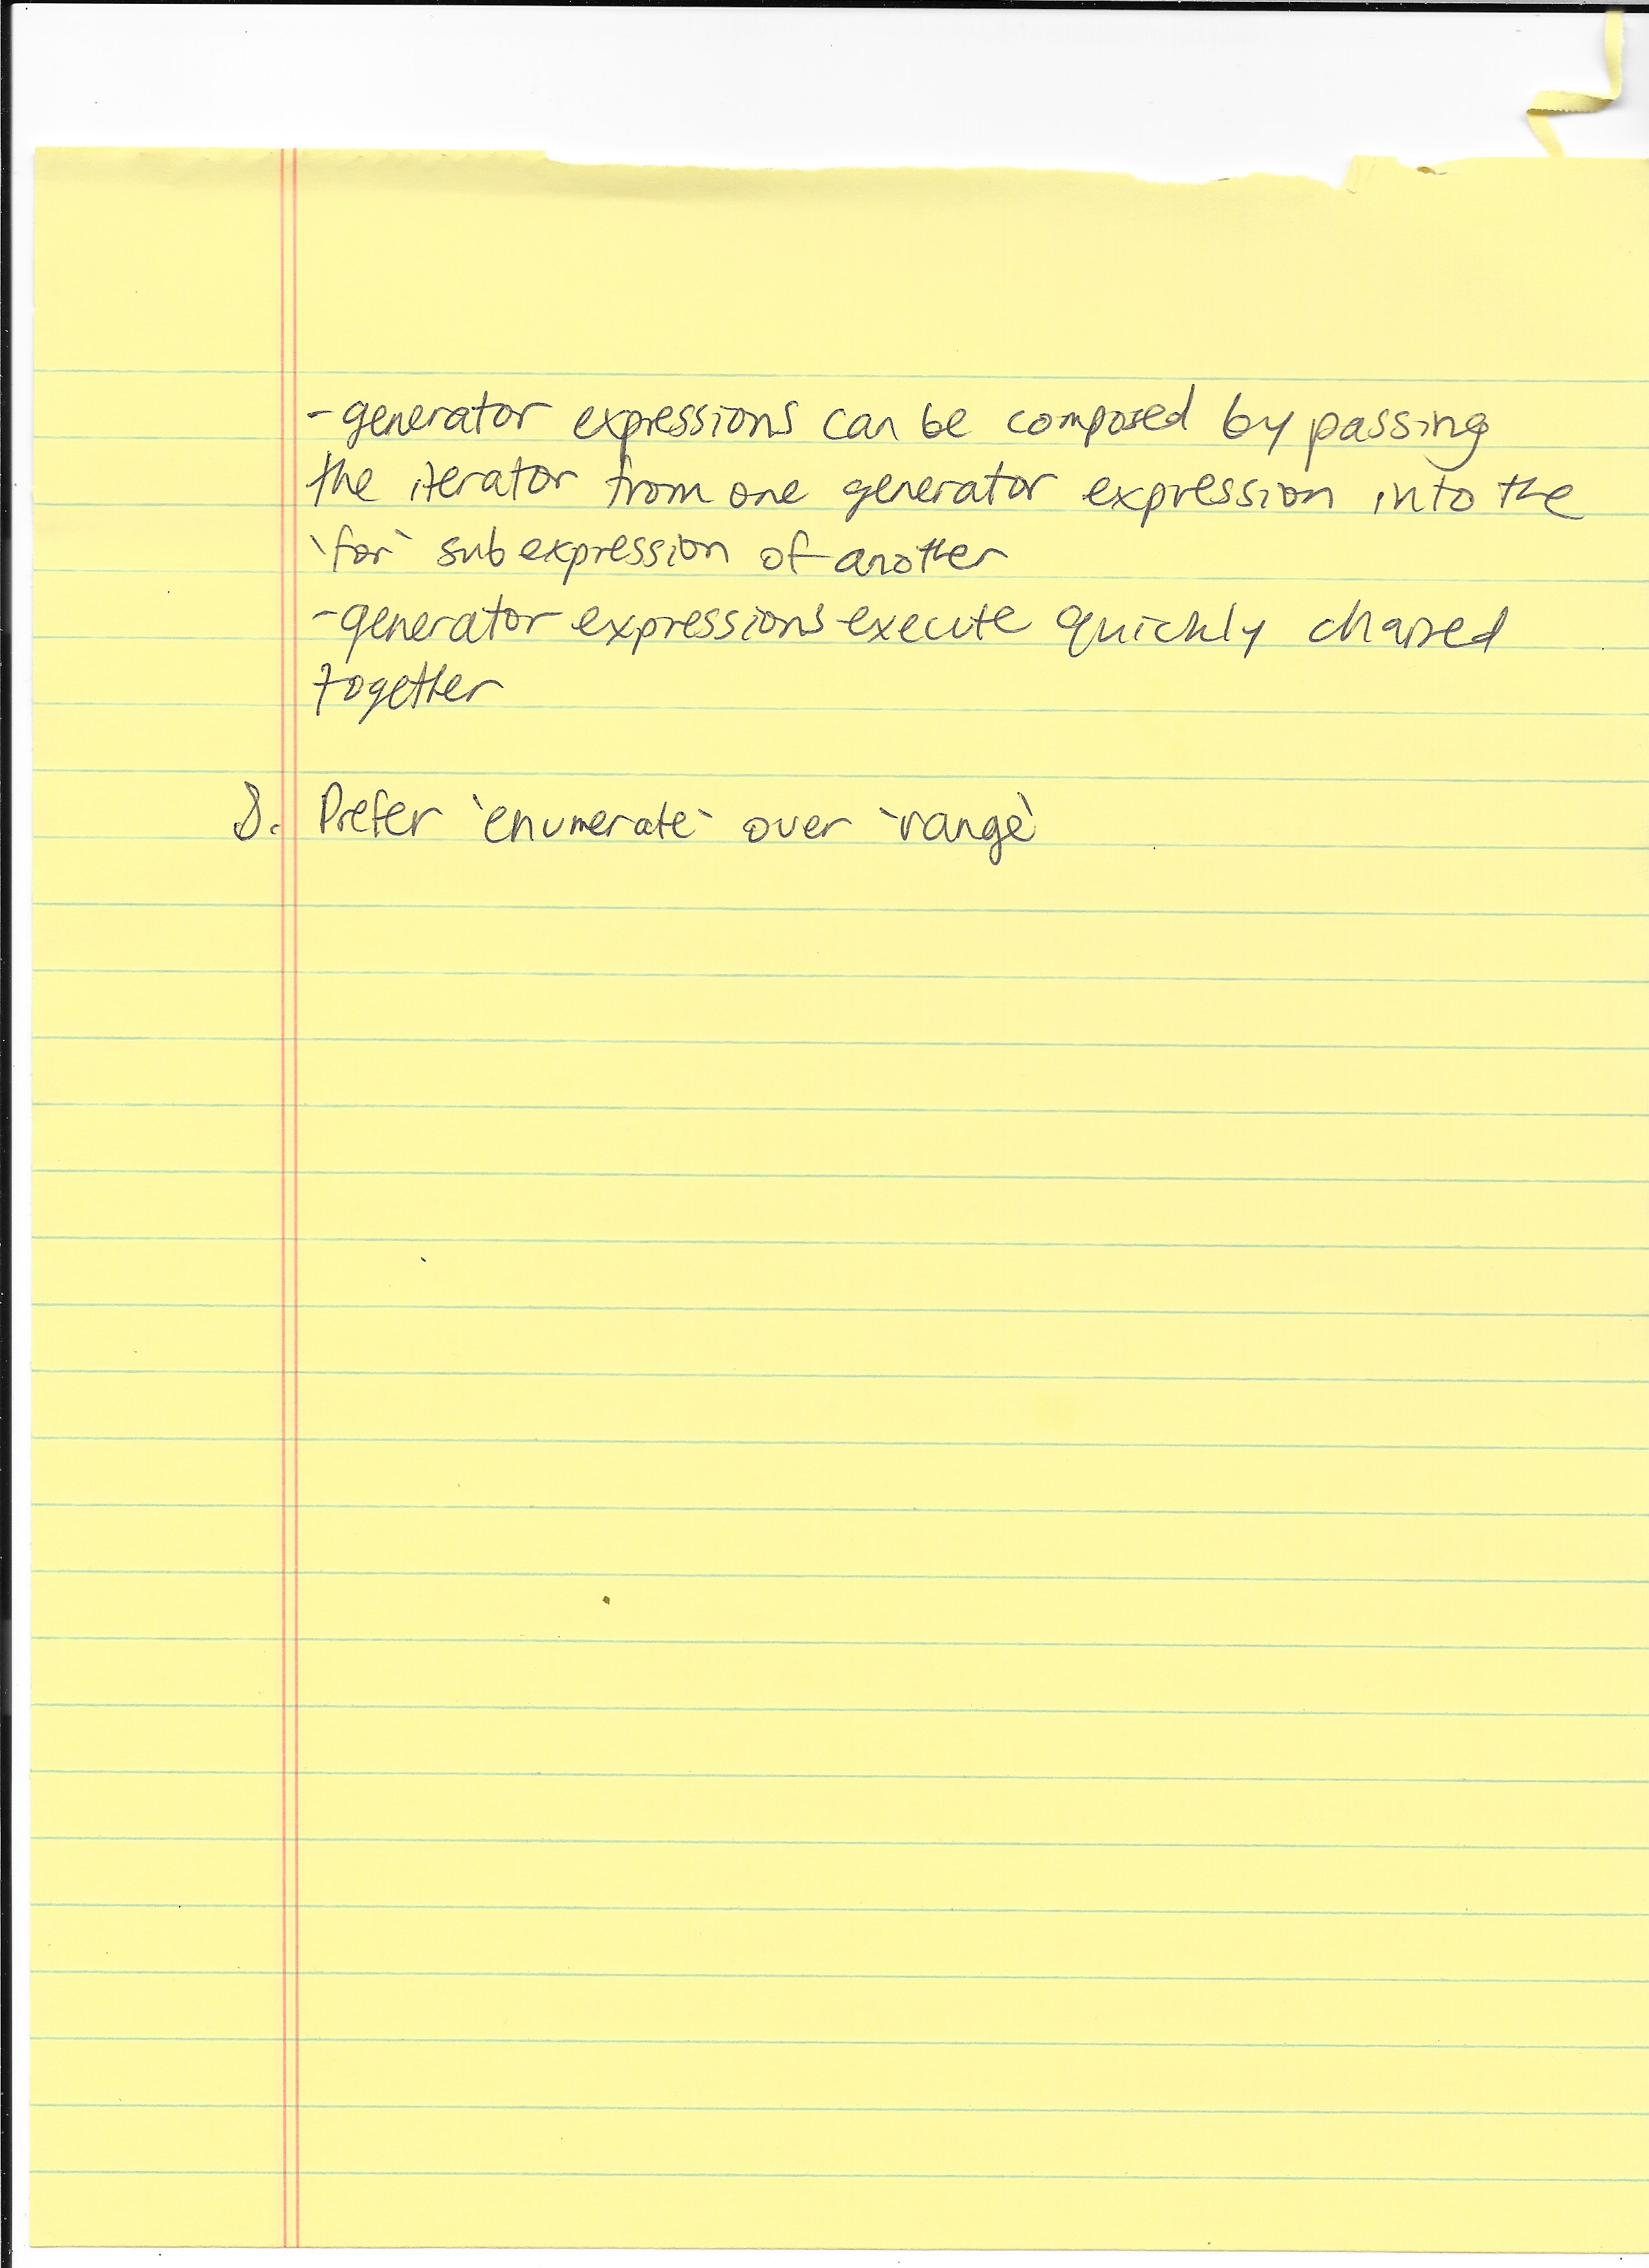 - generator expressions can be composed by passing
the iterator from one generator expression into the
`for` subexpression of another
- generator expressions execute quickly chained
together
8. Prefer `enumerate` over `range`